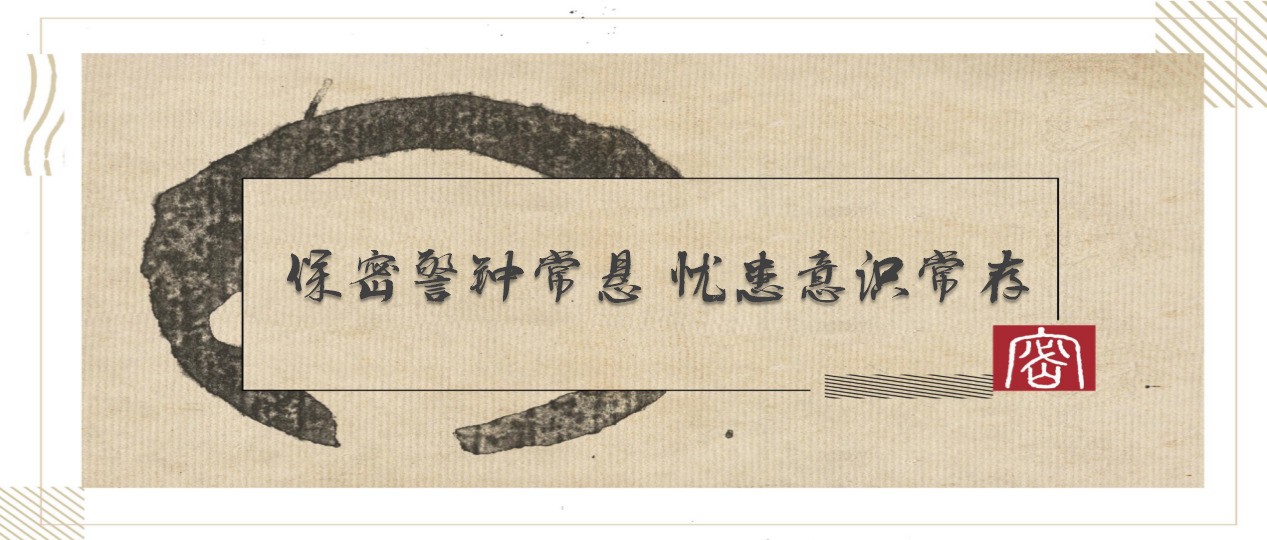 保密警钟常悬 忧患意识常存
密